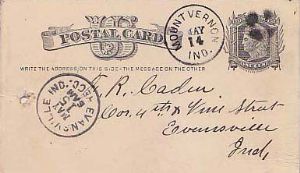 POSTAL CARD
WRITE THE ADDRESS ON THIS SIDE - THE MESSAGE ON THE OTHER
MOUNT VERNON IND.
MAY
14
EVANSVILLE IND.
MAY
15
6AM
REC'D.
J. R. Caden
Cor. 4th & Vine Street
Evansville
Ind.